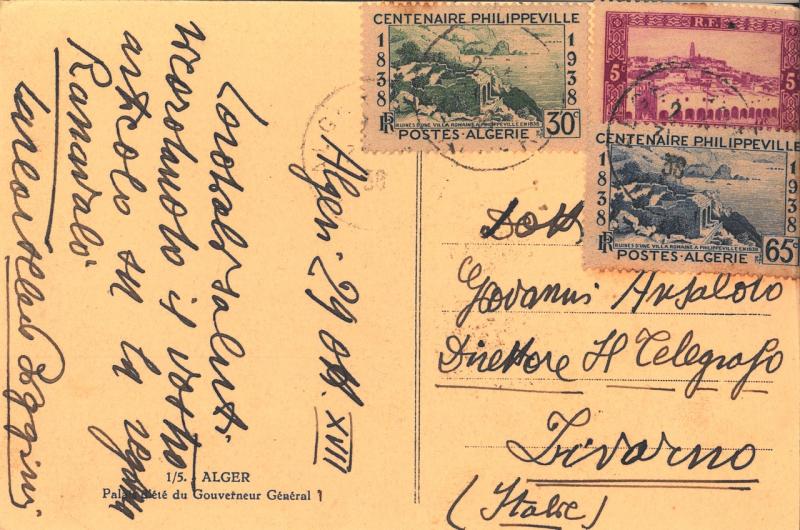 CENTENAIRE PHILIPPEVILLE
1838
1938
RUINES D'UNE VILLA ROMAINE A PHILIPPEVILLE EN 1838
RF POSTES-ALGERIE 30c
R.F.
5c 5c
CENTENAIRE PHILIPPEVILLE
1838
1938
RUINES D'UNE VILLA ROMAINE A PHILIPPEVILLE EN 1838
RF POSTES-ALGERIE 65c
Algeri 29 ott. XVII
Cordiali saluti.
ricordando il vostro
articolo su la regina
Ranavalò
Dott.
Giovanni Ansaldo
Direttore Il Telegrafo
Livorno
(Italie)
1/5. - ALGER
Palais d'été du Gouverneur Général